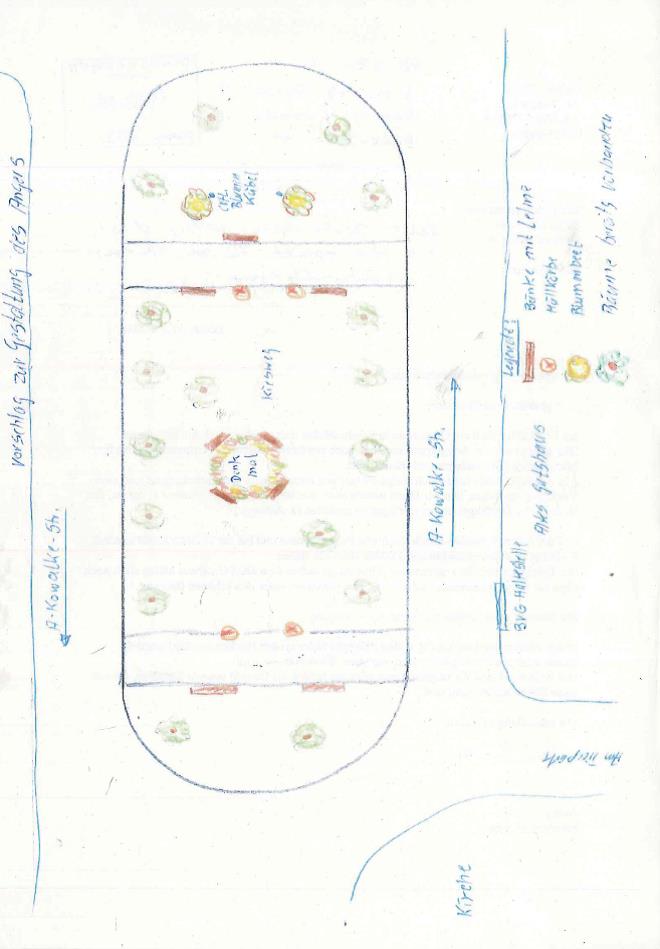 Vorschlag zur Gestaltung des Angers
A-Kowalke-Str.
evtl.
Blumen
Kübel
Kiesweg
Denk
mal
A-Kowalke-Str.
Legende:
Bänke mit Lehne
Müllkörbe
Blumenbeet
Bäume bereits vorhanden
Altes Gutshaus
BVG-Haltestelle
Am Tierpark
Kirche